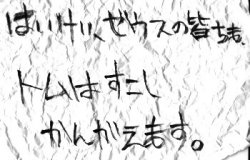 はいけい、ゼウスの皆さま
トムはすこし
かんがえます。